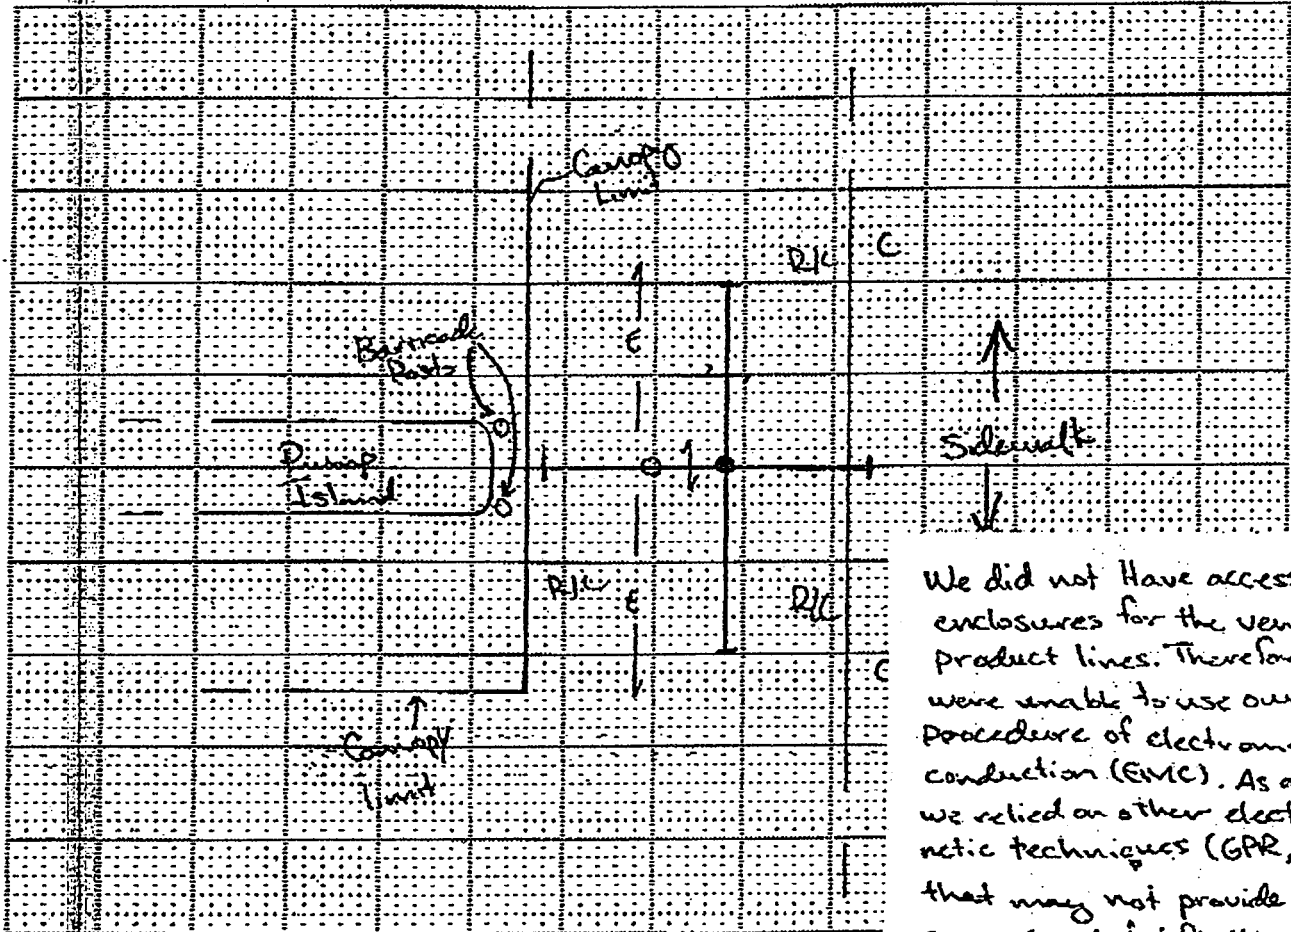 Canopy
Limit
R/C
C
E
Barricade
Posts
Pump
Island
Sidewalk
R/C
E
R/C
C
Canopy
limit
We did not Have access
enclosures for the
product lines. Therefo
were unable to use ou
procedure of electrom
conduction (EMC). As a
we relied on other elect
netic techniques (GPR,
that may not provide